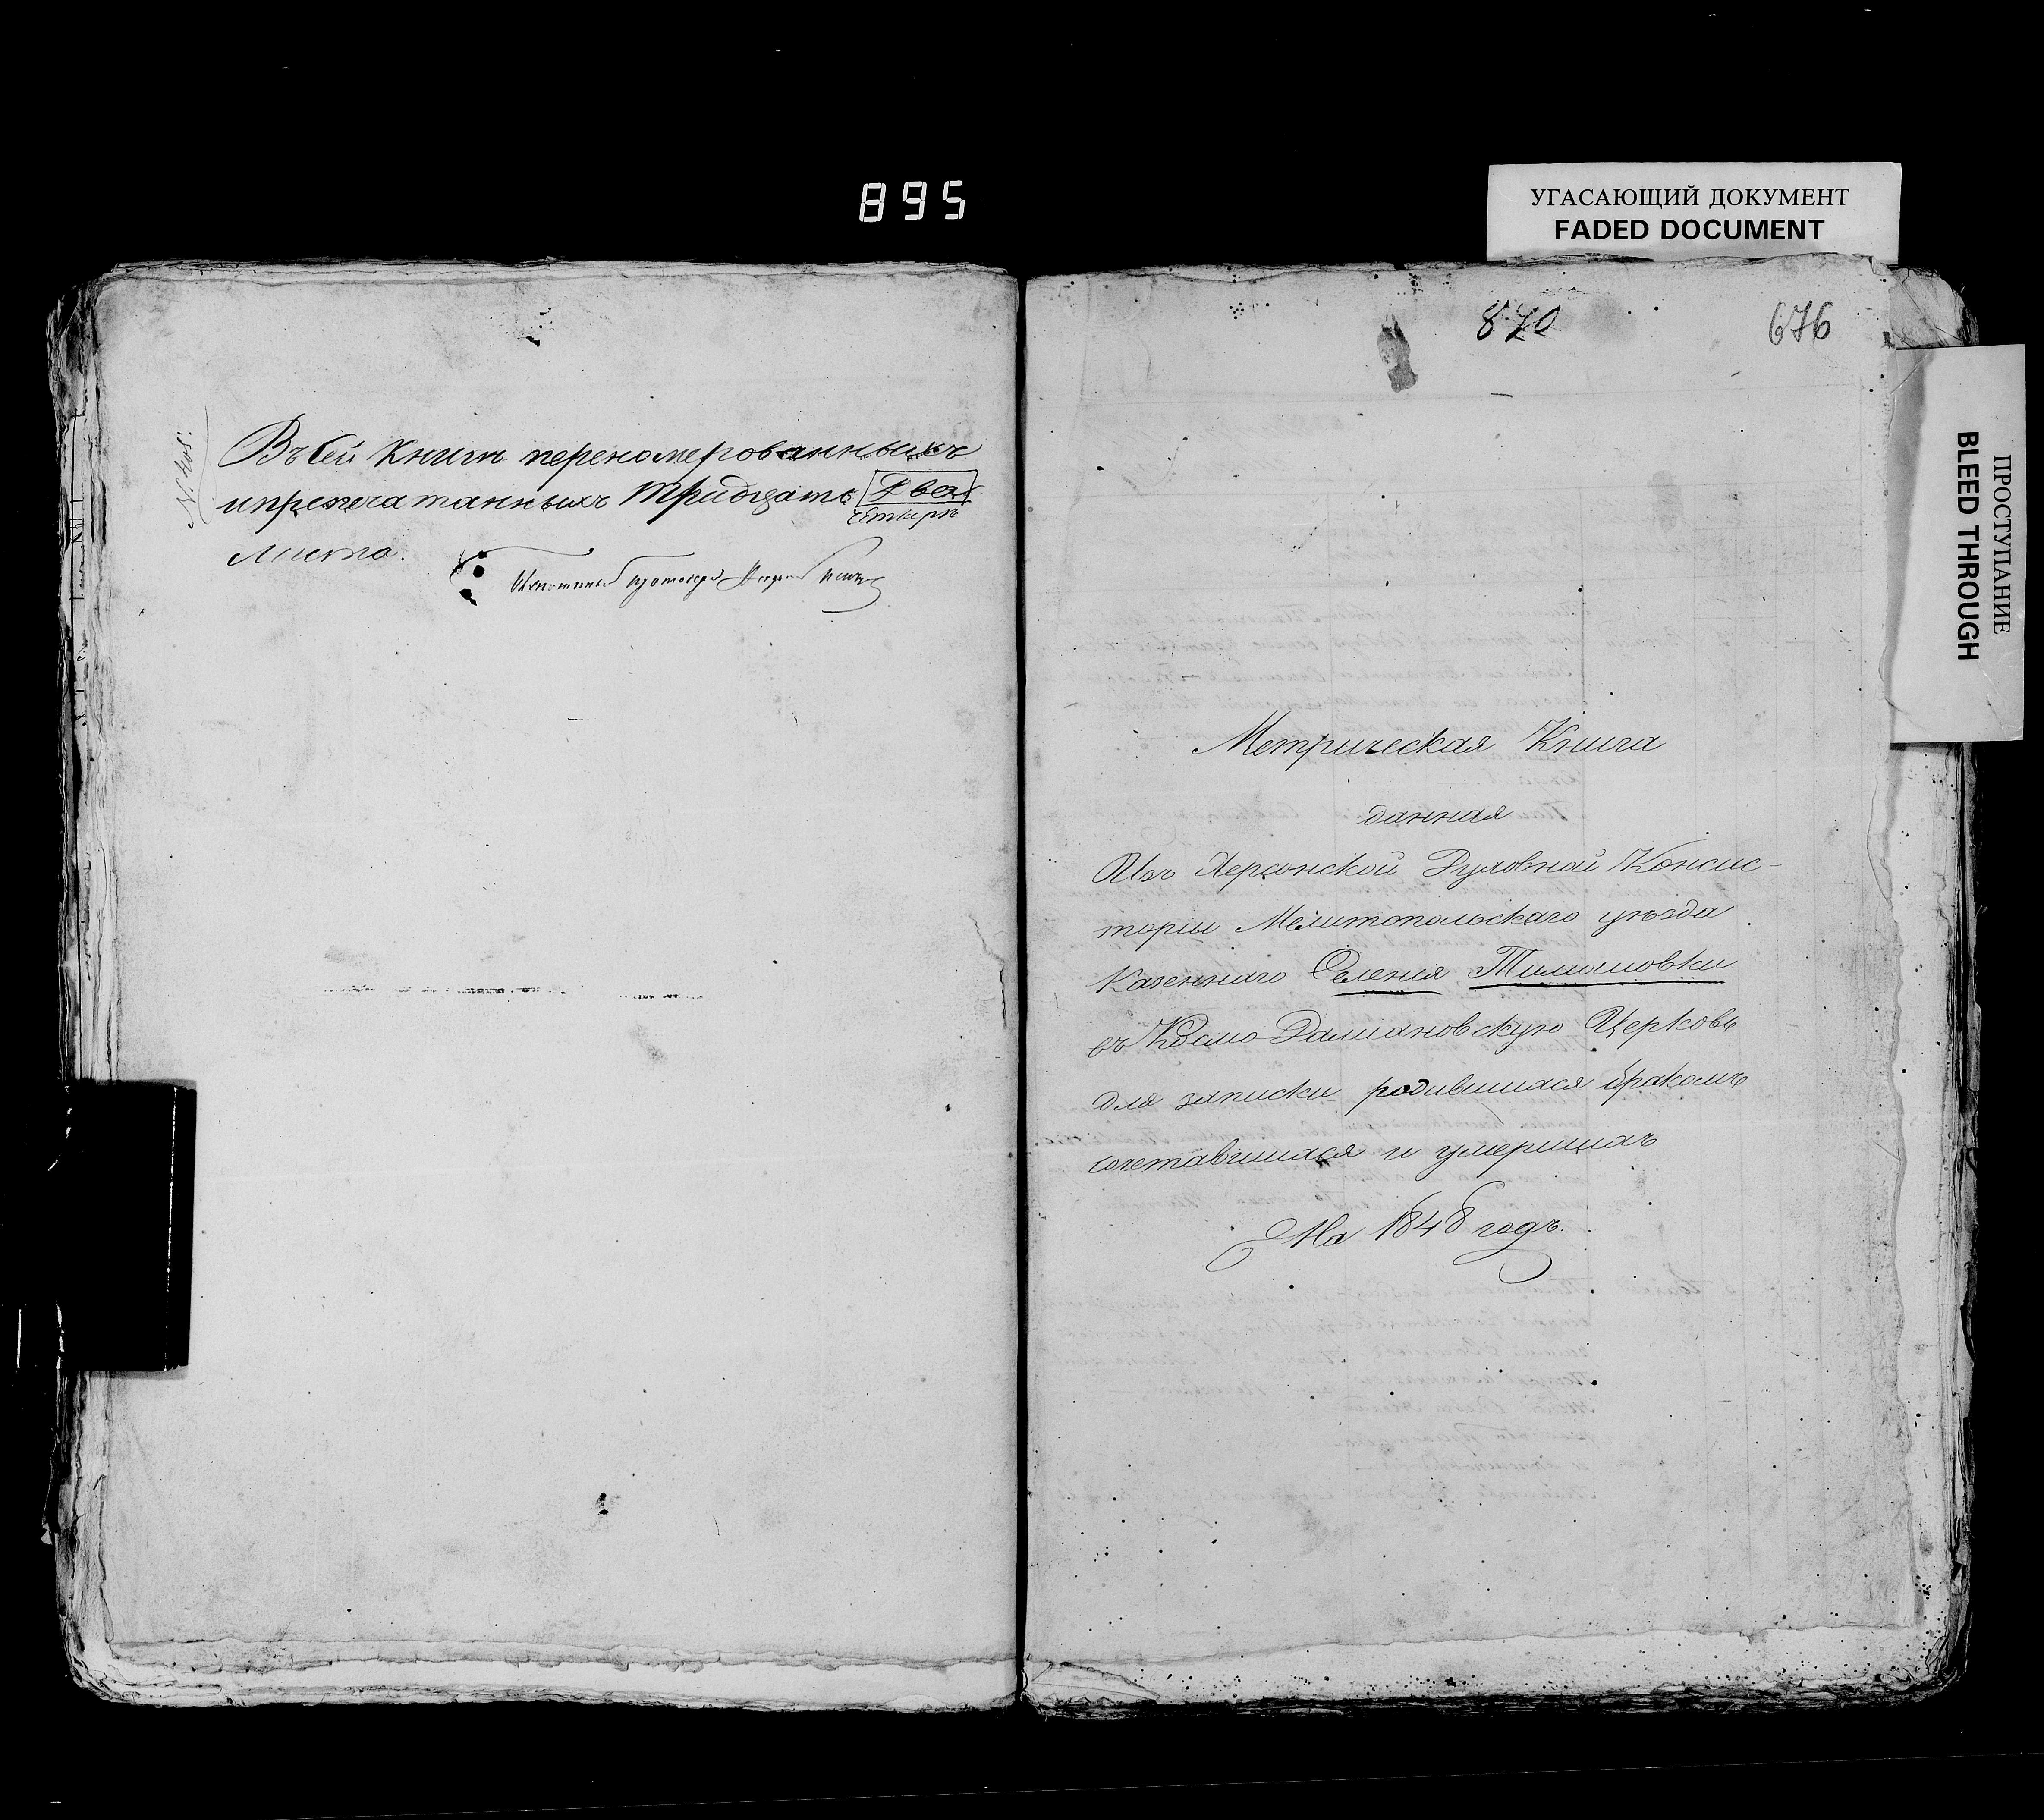 895
УГАСАЮЩИЙ ДОКУМЕНТ
FADED DOCUMENT
ПРОСТУПАНИЕ
BLEED THROUGH
Въ сей Книгѣ переномерованныхъ
и препечатанныхъ тридцать Два
четыре
листа.
Протоіерей
870
676
Метрическая Книга
данная
Изъ Херсонской Духовной Консис-
торіи Мелитопольскаго уѣзда
Казеннаго Селенія Тимошовки
въ Космо-Даміановскую Церковь
для записки родившихся бракомъ
сочетавшихся и умершихъ
На 1848 годъ.